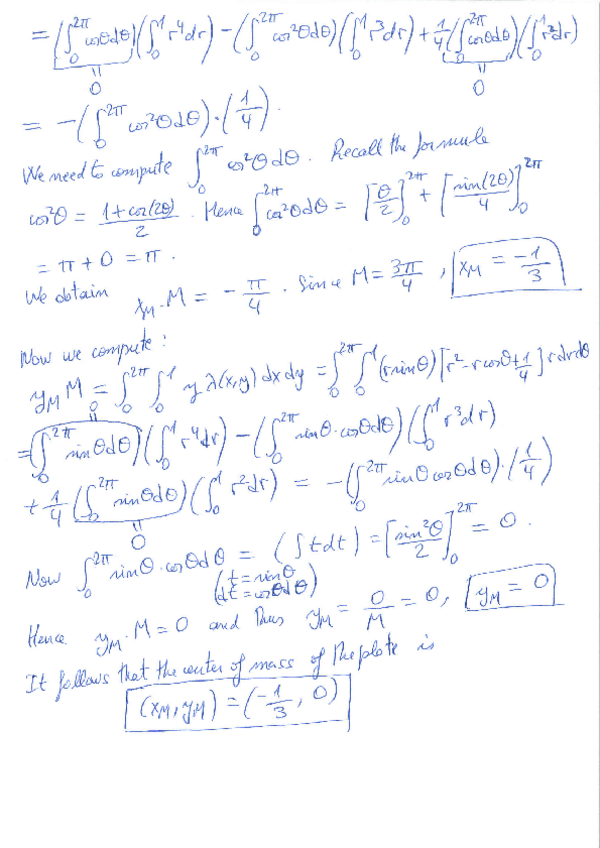 = (∫₀^{2π} cosθdθ)(∫₀¹ r⁴dr) − (∫₀^{2π} cos²θdθ)(∫₀¹ r³dr) + 1/4 (∫₀^{2π} cosθdθ)(∫₀¹ r²dr)
= 0 = 0
= −(∫₀^{2π} cos²θdθ)·(1/4).
We need to compute ∫₀^{2π} cos²θdθ. Recall the formula
cos²θ = (1+cos(2θ))/2. Hence ∫₀^{2π} cos²θdθ = [θ/2]₀^{2π} + [sin(2θ)/4]₀^{2π}
= π + 0 = π.
We obtain x_M·M = −π/4. Since M = 3π/4, x_M = −1/3
Now we compute:
y_M M = ∫₀^{2π} ∫₀¹ y λ(x,y) dxdy = ∫₀^{2π} ∫₀¹ (r sinθ)[r² − r cosθ + 1/4] r dr dθ
0 =
= (∫₀^{2π} sinθdθ)(∫₀¹ r⁴dr) − (∫₀^{2π} sinθ·cosθdθ)(∫₀¹ r³dr)
+ 1/4 (∫₀^{2π} sinθdθ)(∫₀¹ r²dr) = −(∫₀^{2π} sinθ cosθdθ)·(1/4)
= 0
Now ∫₀^{2π} sinθ·cosθdθ = (∫tdt) = [sin²θ/2]₀^{2π} = 0.
(t = sinθ
dt = cosθdθ)
Hence y_M·M = 0 and thus y_M = 0/M = 0, y_M = 0
It follows that the center of mass of the plate is
(x_M, y_M) = (−1/3, 0)